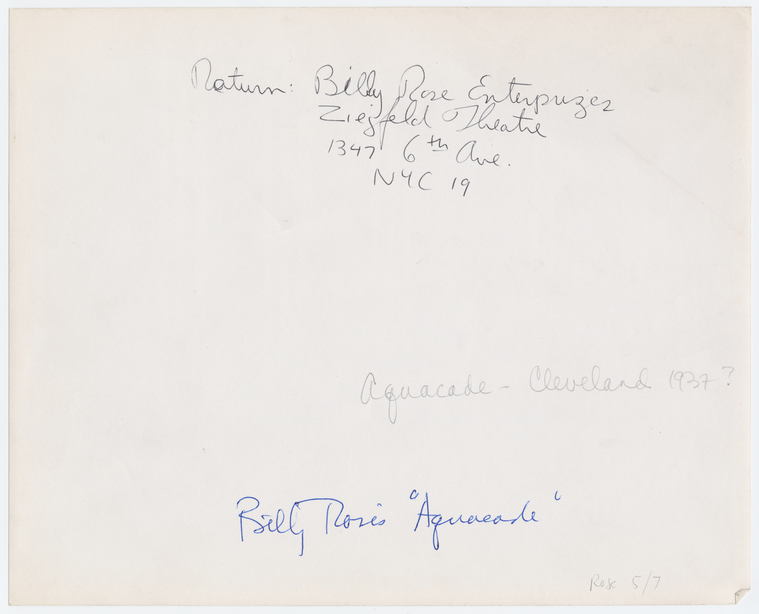 Return: Billy Rose Enterprizes
Ziegfeld Theatre
1347 6th Ave.
NYC 19
Aquacade - Cleveland 1937?
Billy Rose's "Aquacade"
Rose 5/7